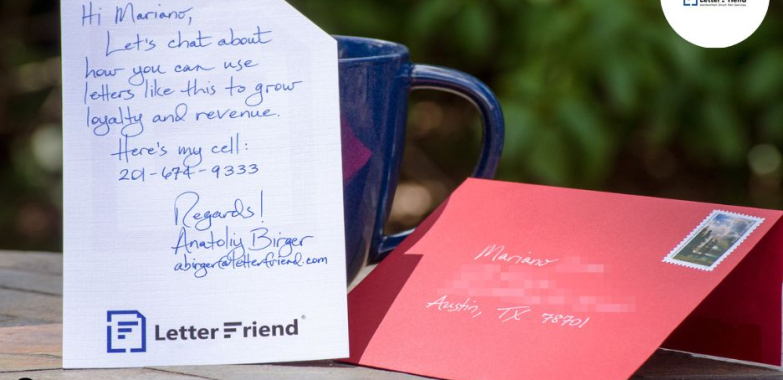 Hi Mariano,
Let's chat about
how you can use
letters like this to grow
loyalty and revenue.
Here's my cell:
201-674-9333
Regards!
Anatoliy Birger
abirger@letterfriend.com
Letter Friend®
Letter Friend
Mariano
Austin, TX 78701